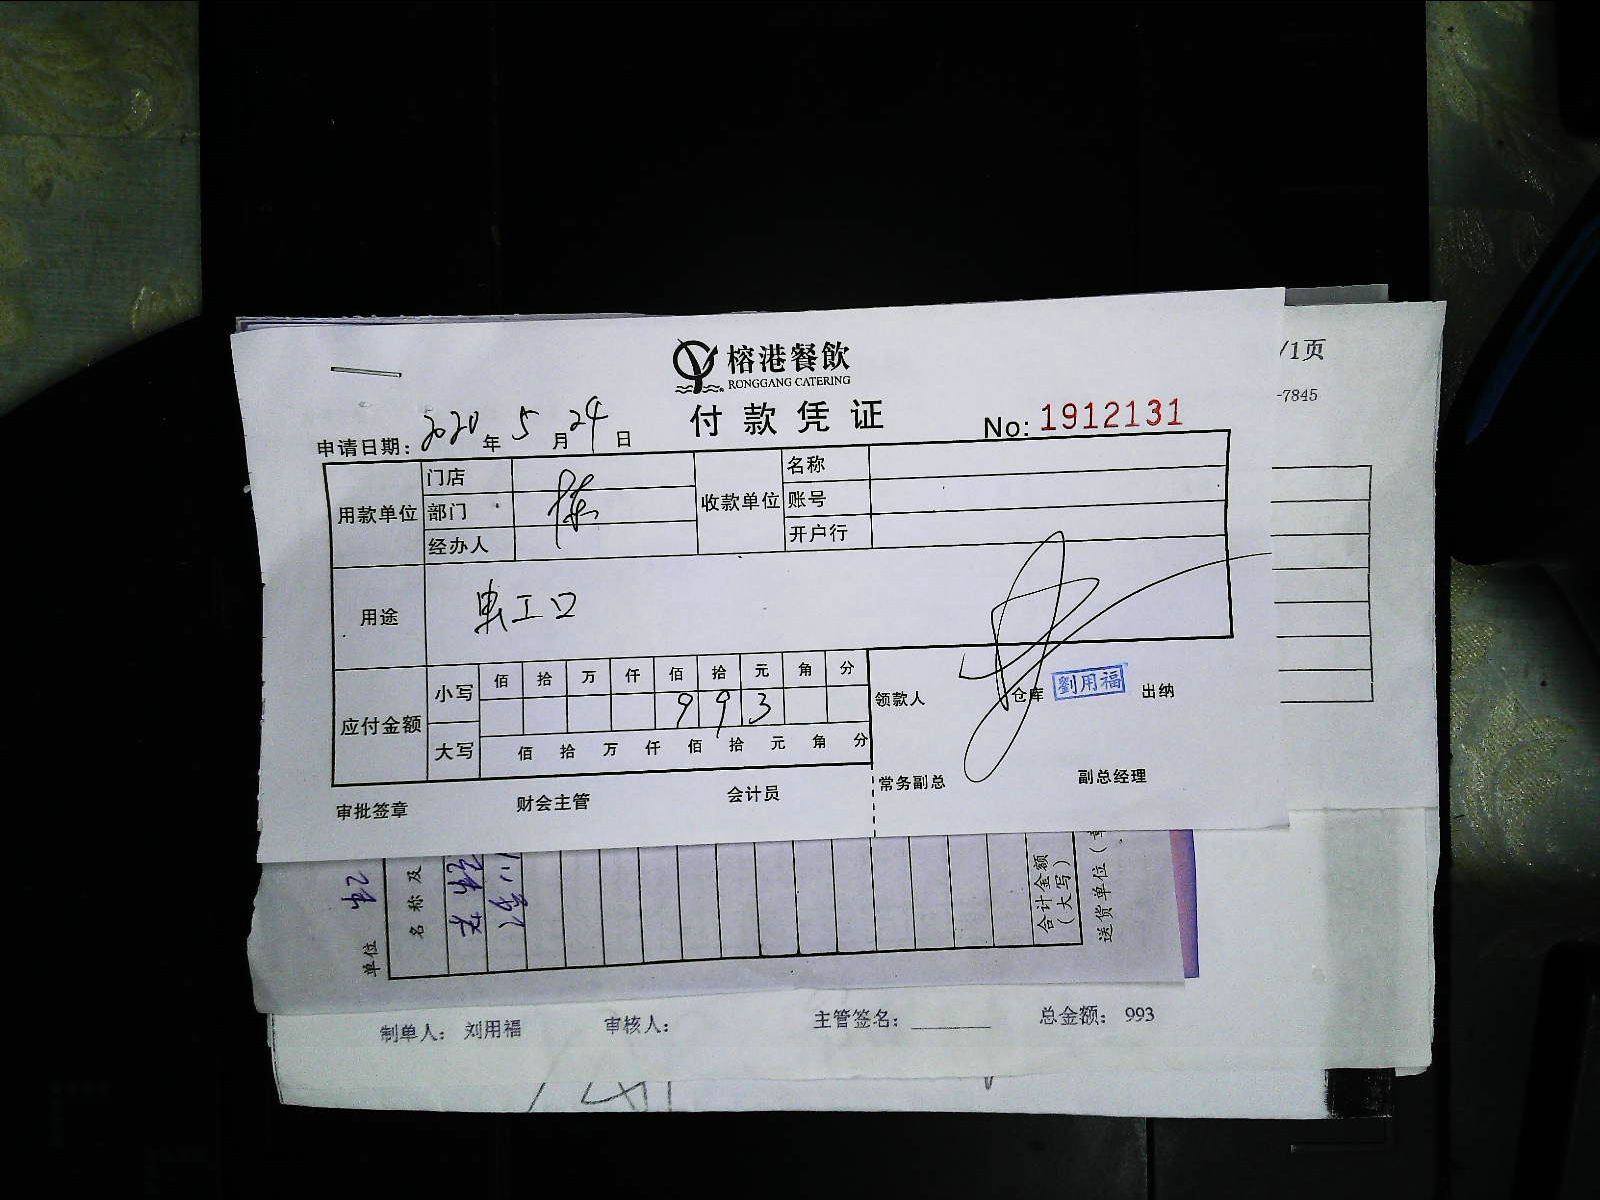 榕港餐飲
RONGGANG CATERING
/1页
-7845
付款凭证
No: 1912131
申请日期: 2020 年 5 月 24 日
用款单位 门店 收款单位 名称
部门 陈 账号
经办人 开户行
用途 工口
应付金额 小写 佰 拾 万 仟 佰 拾 元 角 分
9 9 3
大写 佰 拾 万 仟 佰 拾 元 角 分
领款人 仓库 劉用福 出纳
常务副总 副总经理
审批签章 财会主管 会计员
单位
名称及
合计金额
(大写)
送货单位(
制单人: 刘用福 审核人: 主管签名: 总金额: 993